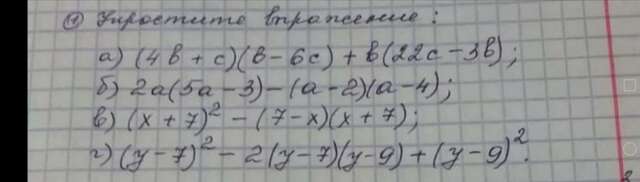 ① Упростите выражение:
а) (4в + с)(в - 6с) + в(22с - 3в);
б) 2а(5а - 3) - (а - 2)(а - 4);
в) (х + 7)² - (7 - х)(х + 7);
г) (у - 7)² - 2(у - 7)(у - 9) + (у - 9)².